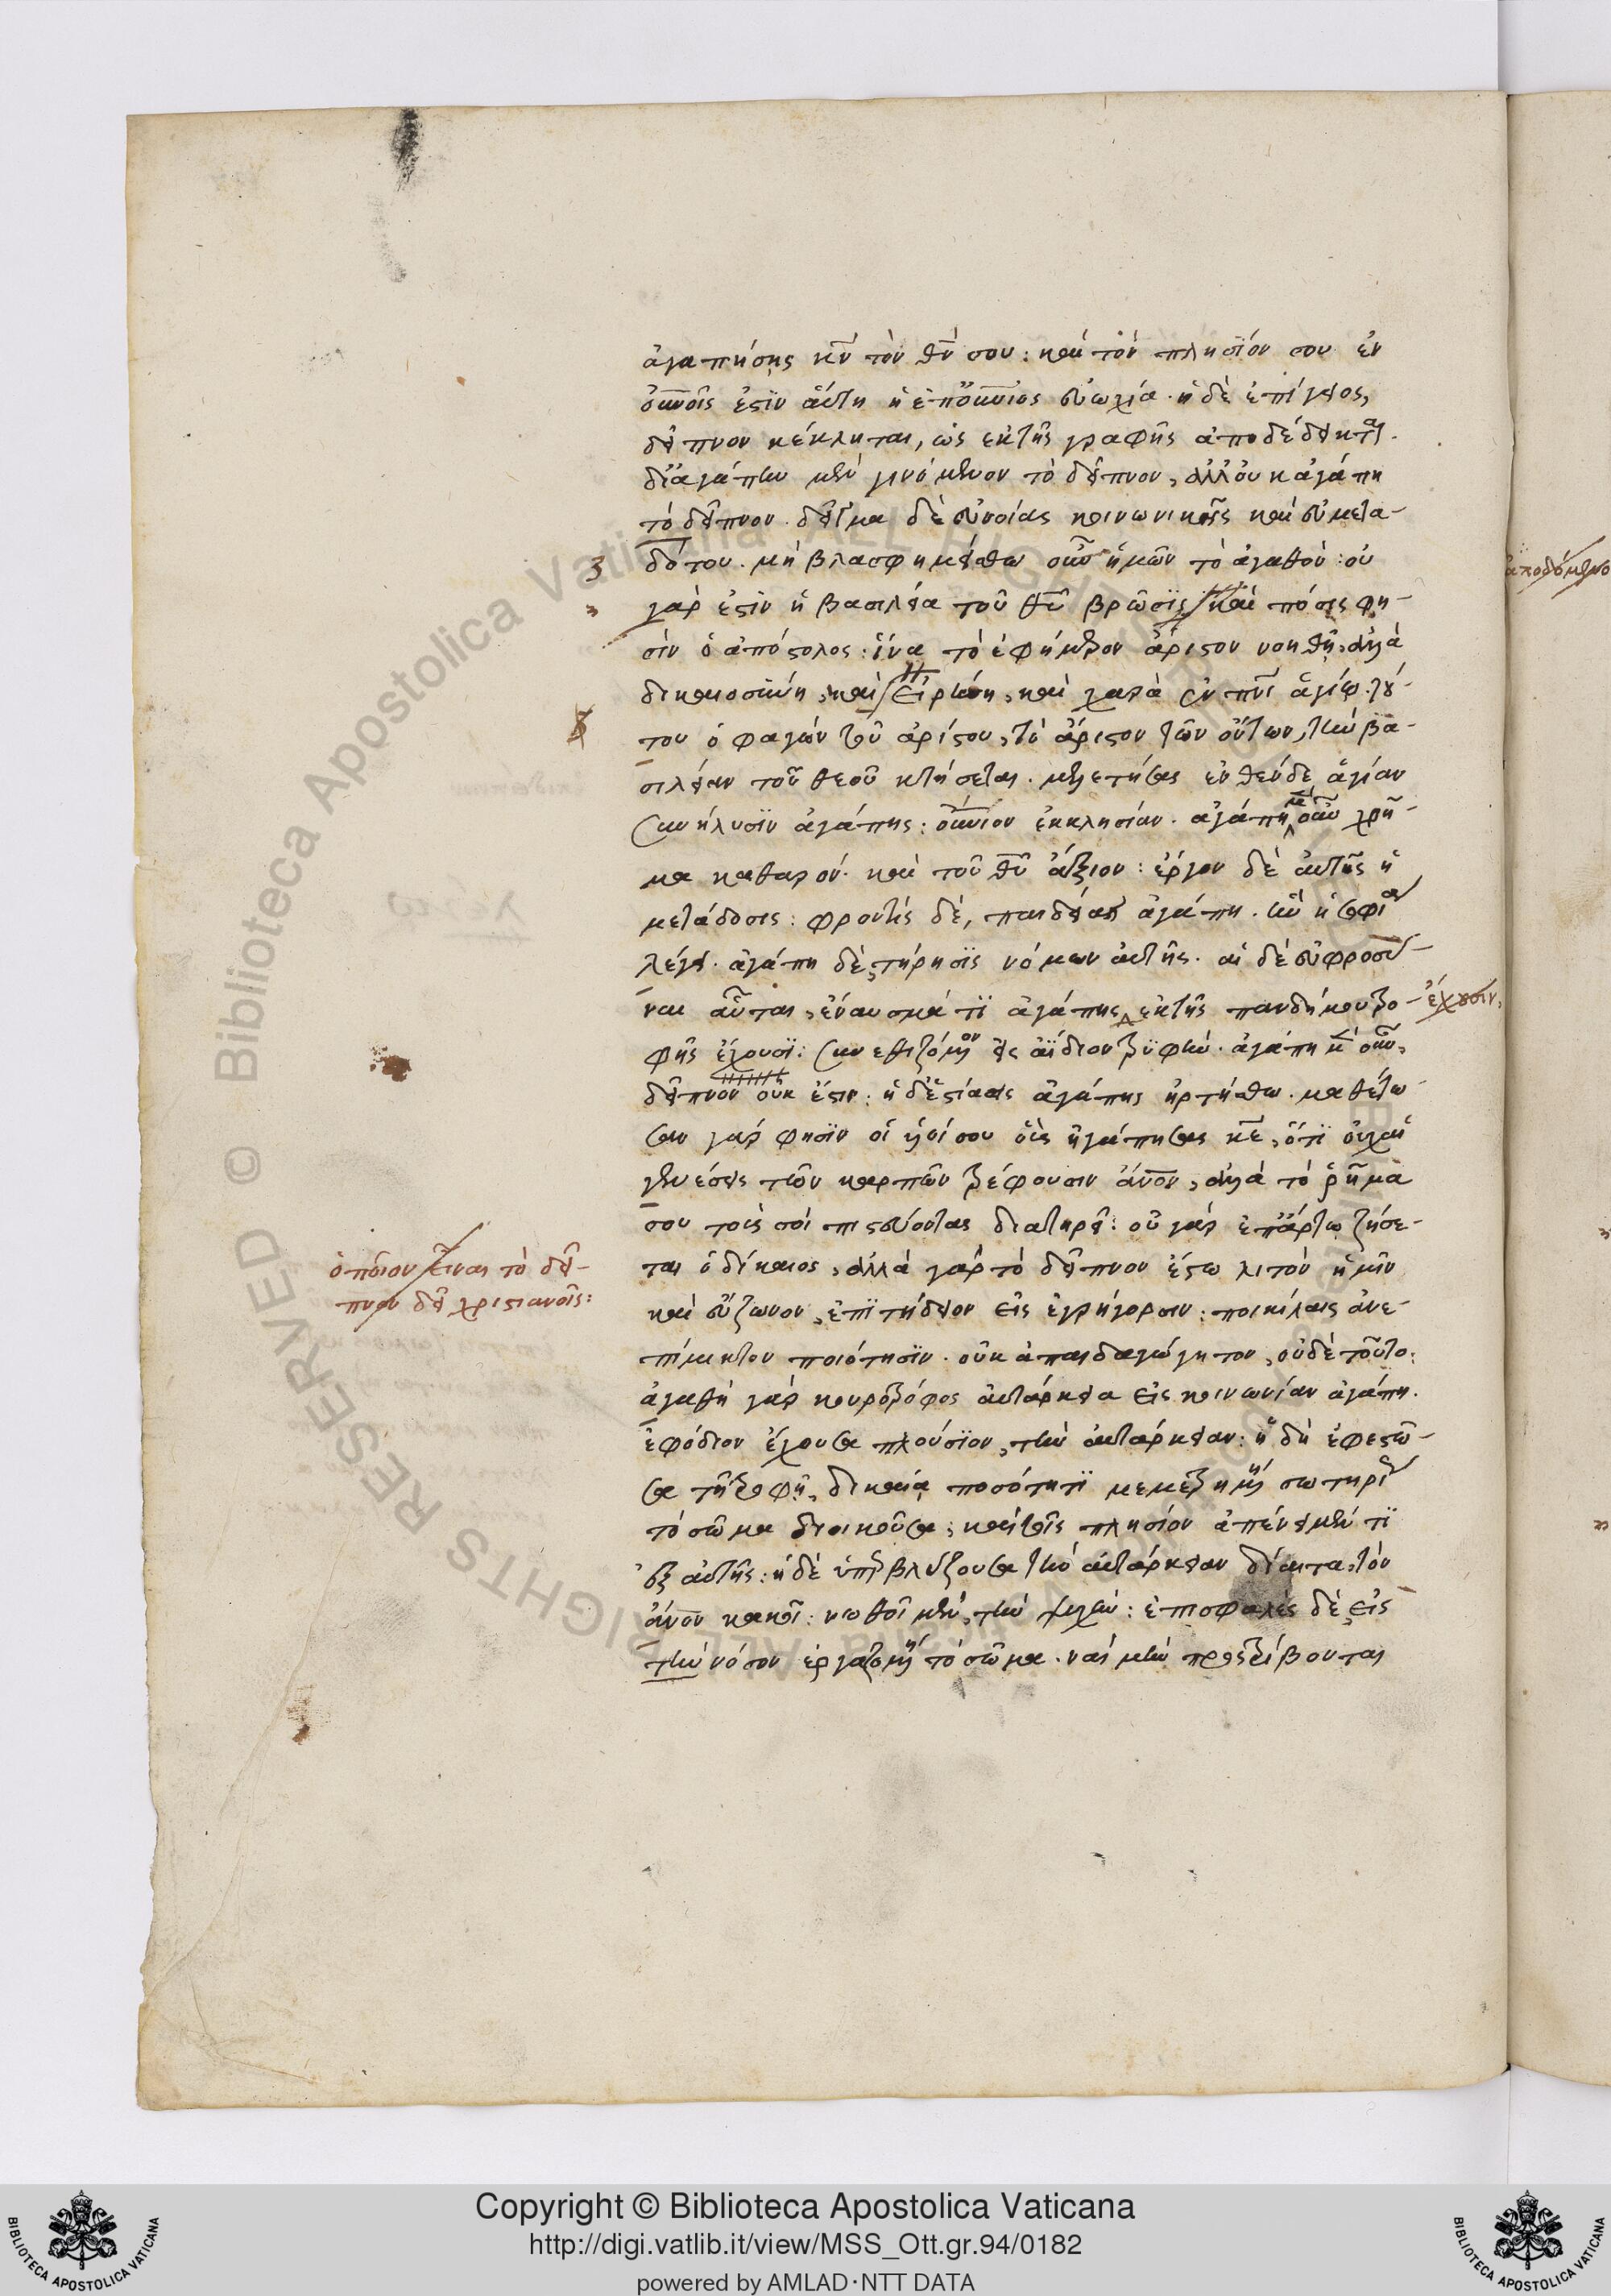 ἀγαπήσης κν τὸν θν σου: καὶ τὸν πλησίον σου ἐν
οὐνοῖς ἐστὶν αὕτη ἡ ἐπουνιος εὐωχία. ἡ δὲ ἐπίγειος,
δεῖπνον κέκληται, ὡς ἐκ τῆς γραφῆς ἀποδέδεικται.
δι' ἀγάπην μὲν γινόμενον τὸ δεῖπνον, ἀλλ' οὐκ ἀγάπη
τὸ δεῖπνον. δεῖγμα δὲ εὐνοίας κοινωνικῆς καὶ εὐμετα-
δότου. μὴ βλασφημείσθω οὖν ἡμῶν τὸ ἀγαθόν: οὐ
γάρ ἐστιν ἡ βασιλεία τοῦ θυ βρῶσις καὶ πόσις φη-
σὶν ὁ ἀπόστολος: ἵνα τὸ ἐφήμερον ἄριστον νοηθῇ, ἀλλὰ
δικαιοσύνη, καὶ εἰρήνη, καὶ χαρὰ ἐν πνι ἁγίῳ. τού-
του ὁ φαγὼν τοῦ ἀρίστου, τὸ ἄριστον τῶν ὄντων, τὴν βα-
σιλείαν τοῦ θεοῦ κτήσεται. μελετήσας ἐνθένδε ἁγίαν
συνήλυσιν ἀγάπης: οὐνιον ἐκκλησίαν. ἀγάπη μὲν οὖν χρῆ-
μα καθαρόν. καὶ τοῦ θυ ἄξιον: ἔργον δὲ αὐτῆς ἡ
μετάδοσις: φροντὶς δὲ, παιδείας ἀγάπη. ἡ σοφία
λέγει. ἀγάπη δὲ, τήρησις νόμων αὐτῆς. αἱ δὲ εὐφροσύ-
ναι αὗται, ἔναυσμά τι ἀγάπης ἐκ τῆς πανδήμου τρο-
φῆς ἔχουσι: συνεθιζόμενον εἰς ἀΐδιον τρυφήν. ἀγάπη μὲν οὖν,
δεῖπνον οὐκ ἔστιν: ἡ δὲ ἑστίασις ἀγάπης ἠρτήσθω. μαθέτω-
σαν γάρ φησιν οἱ υἱοί σου οὓς ἠγάπησας κε, ὅτι οὐχ αἱ
γενέσεις τῶν καρπῶν τρέφουσιν ἄνον, ἀλλὰ τὸ ῥῆμα
σου τοὺς σοὶ πιστεύοντας διατηρεῖ: οὐ γὰρ ἐπ' ἄρτῳ ζήσε-
ται ὁ δίκαιος, ἀλλὰ γὰρ τὸ δεῖπνον ἔστω λιτὸν ἡμῖν
καὶ εὔζωνον, ἐπιτήδειον εἰς ἐγρήγορσιν: ποικίλαις ἀνε-
πίμικτον ποιότησιν. οὐκ ἀπαιδαγώγητον, οὐδὲ τοῦτο:
ἀγαθὴ γὰρ κουροτρόφος αὐτάρκεια εἰς κοινωνίαν ἀγάπη.
ἐφόδιον ἔχουσα πλούσιον, τὴν αὐτάρκειαν: ἣ δὴ ἐφεστῶ-
σα τῇ τροφῇ, δικαίᾳ ποσότητι μεμετρημένῃ σωτηρίως
τὸ σῶμα διοικοῦσα, καὶ τοῖς πλησίον ἀπένειμέν τι
ἐξ αὐτῆς: ἡ δὲ ὑπερβλύζουσα τὴν αὐτάρκειαν δίαιτα, τὸν
ἄνον κακοῖ: νωθοῖ μὲν, τὴν ψυχήν: ἐπισφαλὲς δὲ, εἰς
τὴν νόσον ἐργαζομένη τὸ σῶμα. ναὶ μὴν προστρίβονται
ἔχουσιν,
ὁποῖον εἶναι τὸ δεῖ-
πνον δεῖ χριστιανοῖς:
Copyright © Biblioteca Apostolica Vaticana
http://digi.vatlib.it/view/MSS_Ott.gr.94/0182
powered by AMLAD·NTT DATA
BIBLIOTECA APOSTOLICA VATICANA
BIBLIOTECA APOSTOLICA VATICANA